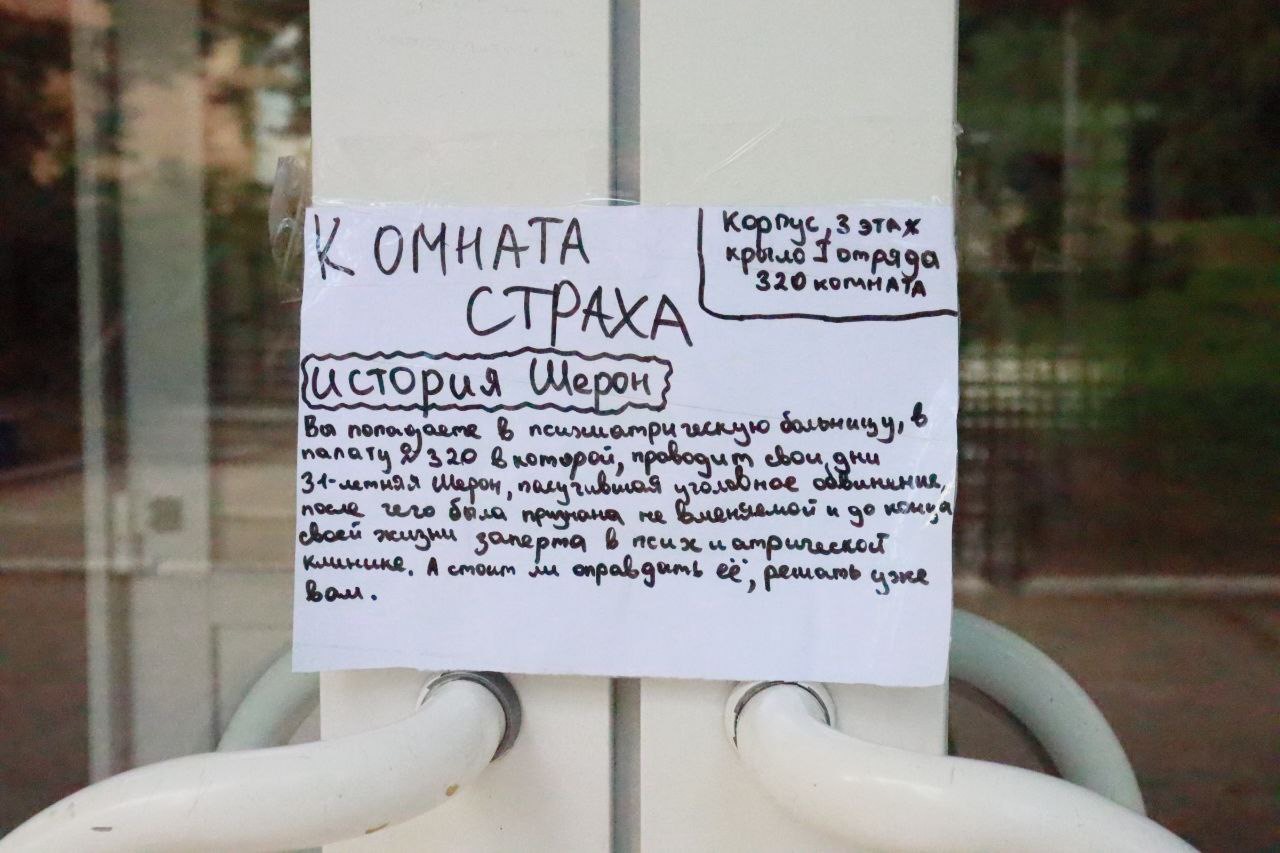 КОМНАТА
СТРАХА
Корпус, 3 этаж
крыло 1 отряда
320 комната
История Шерон
Вы попадаете в психиатрическую больницу, в
палату № 320 в которой, проводит свои дни
31-летняя Шерон, палучившая уголовное обвинение,
после чего была признана не вменяемой и до конца
своей жизни заперта в психиатрической
клинике. А стоит ли оправдать её, решать уже
вам.